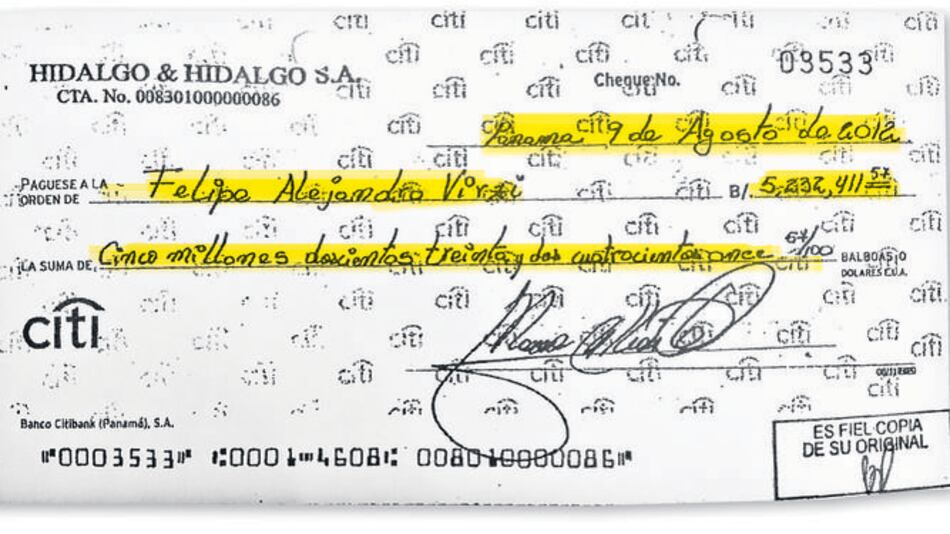 HIDALGO & HIDALGO S.A.
CTA. No. 008301000000086
Cheque No. 03533
Panama 9 de Agosto de 2012
PAGUESE A LA ORDEN DE Felipe Alejandro Virzi B/. 5,232,411 57
LA SUMA DE, Cinco millones doscientos treinta y dos cuatrocientos once 57/100 BALBOAS/O DOLARES E.U.A.
citi
Banco Citibank (Panamá), S.A.
ES FIEL COPIA
DE SU ORIGINAL
⑈0003533⑈ ⑆0001⑉4608⑆ 008010000086⑈